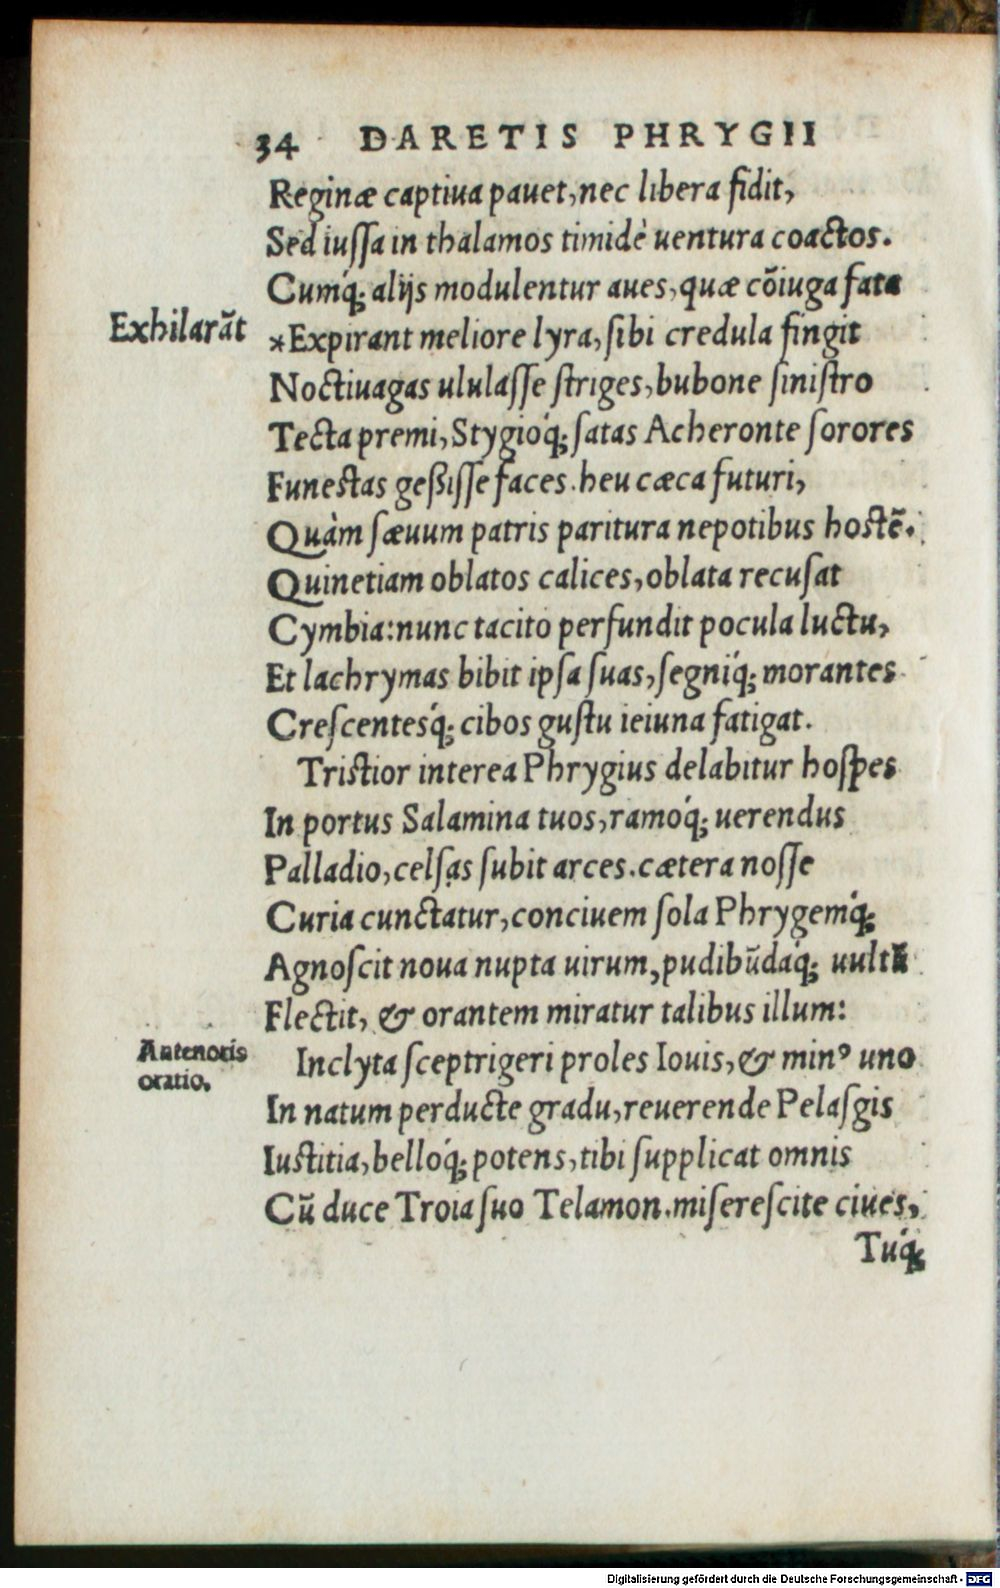 34 DARETIS PHRYGII
Reginæ captiua pauet, nec libera fidit,
Sed iuſſa in thalamos timidè uentura coactos.
Cumq́; alijs modulentur aues, quæ cōiuga fata
Exhilarāt
*Expirant meliore lyra, ſibi credula fingit
Noctiuagas ululaſſe ſtriges, bubone ſiniſtro
Tecta premi, Stygioq́; ſatas Acheronte ſorores
Funestas geßiſſe faces. heu cæca futuri,
Quàm ſæuum patris paritura nepotibus hostē.
Quinetiam oblatos calices, oblata recuſat
Cymbia: nunc tacito perfundit pocula luctu,
Et lachrymas bibit ipſa ſuas, ſegniq́; morantes
Creſcentesq́; cibos guſtu ieiuna fatigat.
Tristior interea Phrygius delabitur hoſpes
In portus Salamina tuos, ramoq́; uerendus
Palladio, celſas ſubit arces. cætera noſſe
Curia cunctatur, conciuem ſola Phrygemq́;
Agnoſcit noua nupta uirum, pudibūdaq́; uultū
Flectit, & orantem miratur talibus illum:
Antenoris
oratio.
Inclyta ſceptrigeri proles Iouis, & minꝰ uno
In natum perducte gradu, reuerende Pelaſgis
Iustitia, belloq́; potens, tibi ſupplicat omnis
Cū duce Troia ſuo Telamon. miſereſcite ciues,
Tuq́;
Digitalisierung gefördert durch die Deutsche Forschungsgemeinschaft - DFG